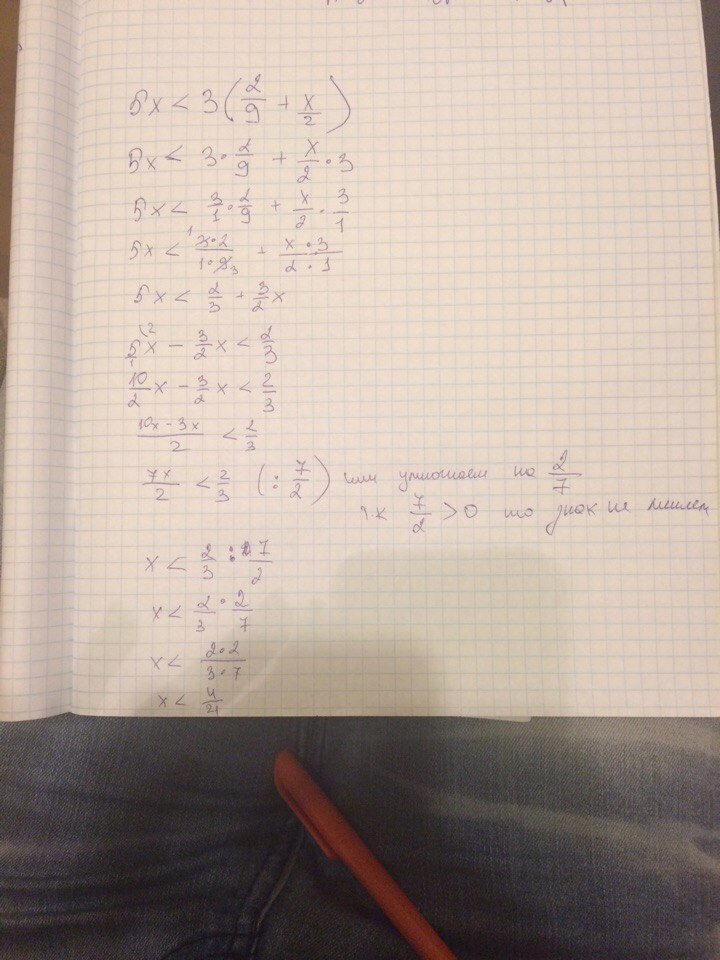 5x < 3(2/9 + x/2)
5x < 3·2/9 + x/2·3
5x < 3/1·2/9 + x/2·3/1
5x < 3·2/1·9 + x·3/2·1
5x < 2/3 + 3/2x
5x - 3/2x < 2/3
10/2x - 3/2x < 2/3
10x - 3x/2 < 2/3
7x/2 < 2/3 (: 7/2) или умножаем на 2/7
т.к 7/2 > 0 то знак не меняем
x < 2/3 : 7/2
x < 2/3 · 2/7
x < 2·2/3·7
x < 4/21